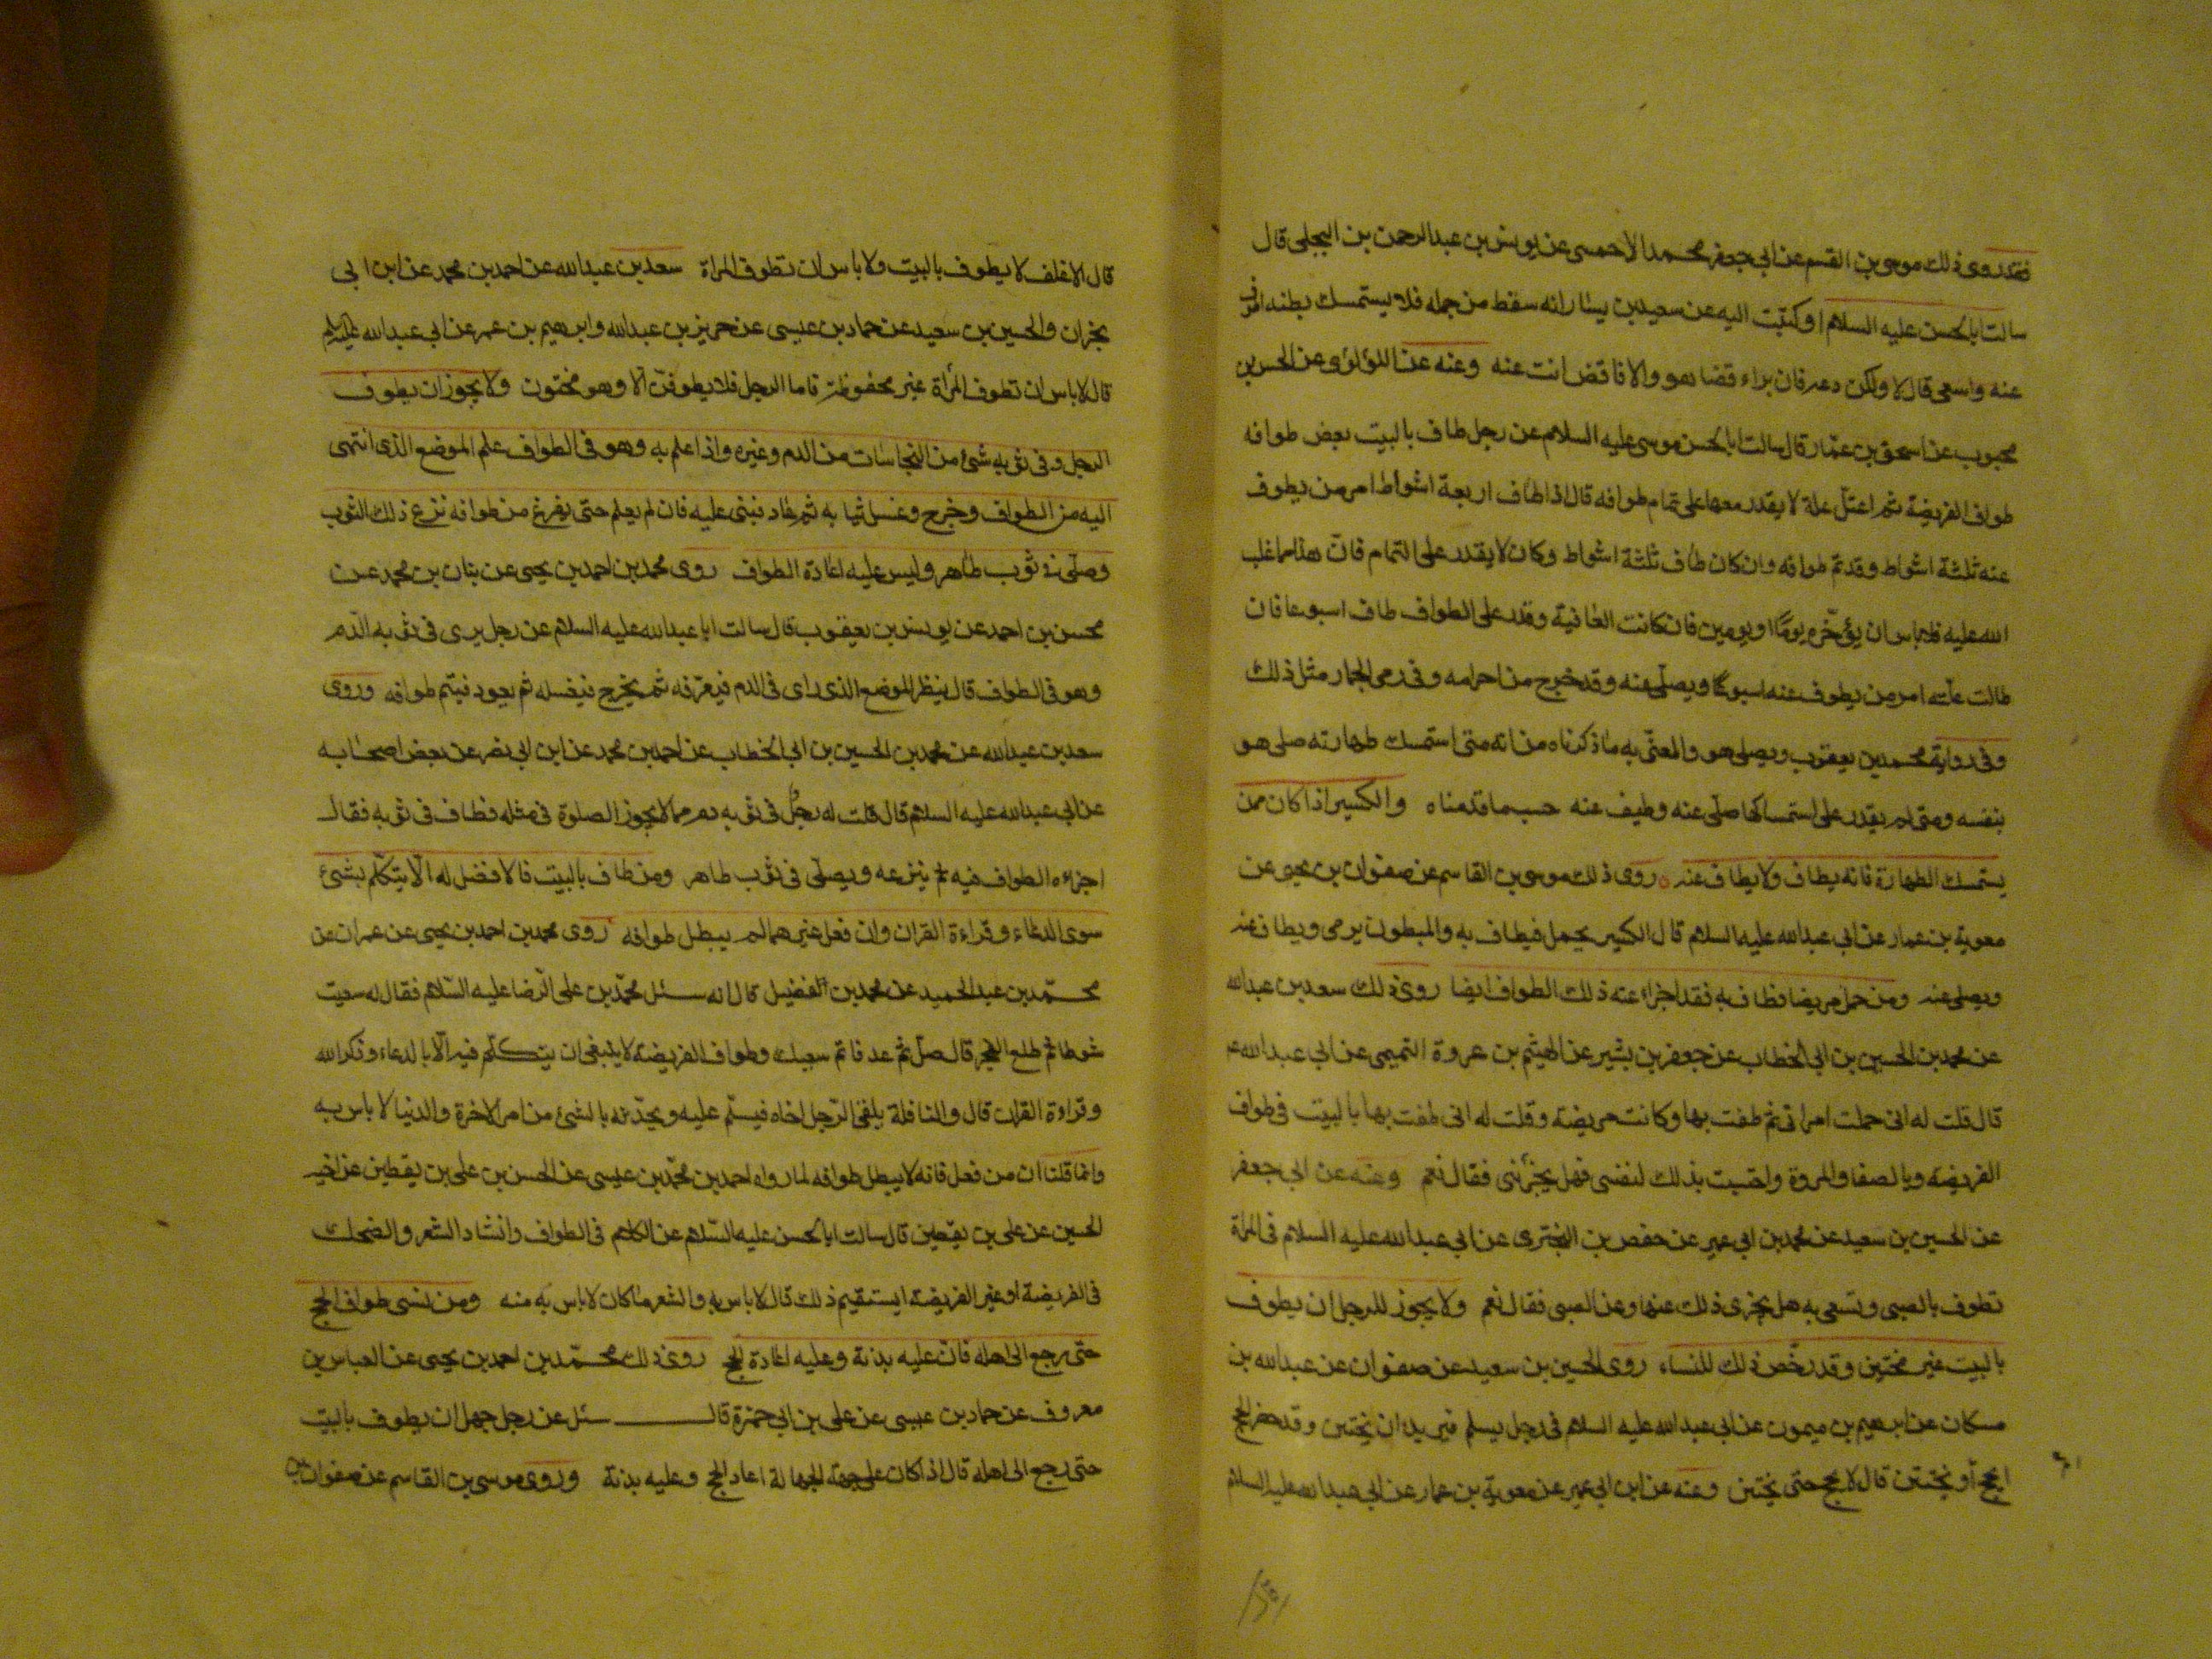 فقد روى ذلك موسى بن القسم عن ابى جعفر محمد الاحمسى عن يونس بن عبدالرحمن بن البجلى قال
سالت ابا الحسن عليه السلام او كتبت اليه عن سعيد بن يسار انه سقط من جمله فلا يستمسك بطنه اطوف
عنه واسعى قال لا ولكن دعه فان براء قضا هو والا فاقض انت عنه وعنه عن اللؤلؤى عن الحسن بن
محبوب عن اسحق بن عمار قال سالت ابا الحسن موسى عليه السلام عن رجل طاف بالبيت بعض طوافه
طواف الفريضة ثم اعتل علة لا يقدر معها على تمام طوافه قال اذا طاف اربعة اشواط امر من يطوف
عنه ثلثة اشواط وقد تم طوافه وان كان طاف ثلثة اشواط وكان لا يقدر على التمام فان هذا مما غلب
الله عليه فلا باس ان يؤخره يوما او يومين فان كانت العافية وقدر على الطواف طاف اسبوعا فان
طالت علته امر من يطوف عنه اسبوعا ويصلى عنه وقد خرج من احرامه وفى رمى الجمار مثل ذلك
وفى رواية محمد بن يعقوب ويصلى هو والمعنى به ما ذكرناه من انه متى استمسك طهارته صلى هو
بنفسه ومتى لم يقدر على استمساكها صلى عنه وطيف عنه حسب ما قدمناه والكسير اذا كان ممن
يستمسك الطهارة فانه يطاف ولا يطاف عنه روى ذلك موسى بن القاسم عن صفوان بن يحيى عن
معوية بن عمار عن ابى عبدالله عليه السلام قال الكسير يحمل فيطاف به والمبطون يرمى ويطاف عنه
ويصلى عنه ومن حمل مريضا فطاف به فقد اجزاء عنه ذلك الطواف ايضا روى ذلك سعد بن عبدالله
عن محمد بن الحسين بن ابى الخطاب عن جعفر بن بشير عن الهيثم بن عروة التميمى عن ابى عبدالله ع
قال قلت له انى حملت امراتى ثم طفت بها وكانت مريضة وقلت له انى طفت بها بالبيت فى طواف
الفريضة وبالصفا والمروة واحتسبت بذلك لنفسى فهل يجزئنى فقال نعم وعنه عن ابى جعفر
عن الحسين بن سعيد عن محمد بن ابى عمير عن حفص بن البخترى عن ابى عبدالله عليه السلام فى المراة
تطوف بالصبى وتسعى به هل يجزى ذلك عنها وعن الصبى فقال نعم ولا يجوز للرجل ان يطوف
بالبيت غير مختتن وقد رخص ذلك للنساء روى الحسين بن سعيد عن صفوان عن عبدالله بن
مسكان عن ابرهيم بن ميمون عن ابى عبدالله عليه السلام فى رجل يسلم فيريد ان يختتن وقد حضر الحج
ايحج او يختتن قال لا يحج حتى يختتن وعنه عن ابن ابى عمير عن معوية بن عمار عن ابى عبدالله عليه السلام
قال الاغلف لا يطوف بالبيت ولا باس ان تطوف المراة سعد بن عبدالله عن احمد بن محمد عن ابن ابى
نجران والحسين بن سعيد عن حماد بن عيسى عن حريز بن عبدالله وابرهيم بن عمر عن ابى عبدالله عليه السلام
قال لا باس ان تطوف المرأة غير مخفوظة فاما الرجل فلا يطوفن الا وهو مختون ولا يجوز ان يطوف
الرجل وفى ثوبه شئ من النجاسات من الدم وغيره واذا علم به وهو فى الطواف علم الموضع الذى انتهى
اليه من الطواف وخرج وغسل ثيابه ثم عاد فبنى عليه فان لم يعلم حتى يفرغ من طوافه نزع ذلك الثوب
وصلى فى ثوب طاهر وليس عليه اعادة الطواف روى محمد بن احمد بن يحيى عن بنان بن محمد عن
محسن بن احمد عن يونس بن يعقوب قال سالت ابا عبدالله عليه السلام عن رجل يرى فى ثوبه الدم
وهو فى الطواف قال ينظر الموضع الذى راى فى الدم فيعرفه ثم يخرج فيغسله ثم يعود فيتم طوافه وروى
سعد بن عبدالله عن محمد بن الحسين بن ابى الخطاب عن احمد بن محمد عن ابن ابى نصر عن بعض اصحابه
عن ابى عبدالله عليه السلام قال قلت له رجل فى ثوبه دم مما لا يجوز الصلوة فى مثله فطاف فى ثوبه فقال
اجزاءه الطواف فيه ثم ينزعه ويصلى فى ثوب طاهر ومن طاف بالبيت فالافضل له الا يتكلم بشئ
سوى الدعاء وقراءة القران وان فعل غيرهما لم يبطل طوافه روى محمد بن احمد بن يحيى عن عمران عن
محمد بن عبدالحميد عن محمد بن الفضيل قال انه سئل محمد بن على الرضا عليه السلام فقال له سعيت
شوطا ثم طلع الفجر قال صل ثم عد فاتم سعيك وطواف الفريضة لا ينبغى ان يتكلم فيه الا بالدعاء وذكر الله
وقراءة القران قال والنافلة يلقى الرجل اخاه فيسلم عليه ويحدثه بالشئ من امر الاخرة والدنيا لا باس به
وانما قلنا ان من فعل فانه لا يبطل طوافه لما رواه احمد بن محمد بن عيسى عن الحسن بن على بن يقطين عن اخيه
الحسين عن على بن يقطين قال سالت ابا الحسن عليه السلام عن الكلام فى الطواف وانشاد الشعر والضحك
فى الفريضة او غير الفريضة ايستقيم ذلك قال لا باس به والشعر ما كان لا باس به منه ومن نسى طواف الحج
حتى يرجع الى اهله فان عليه بدنة وعليه اعادة الحج روى ذلك محمد بن احمد بن يحيى عن العباس بن
معروف عن حماد بن عيسى عن على بن ابى حمزة قال سئل عن رجل جهل ان يطوف بالبيت
حتى رجع الى اهله قال اذا كان على جهة الجهالة اعاد الحج وعليه بدنة وروى موسى بن القاسم عن صفوان بن